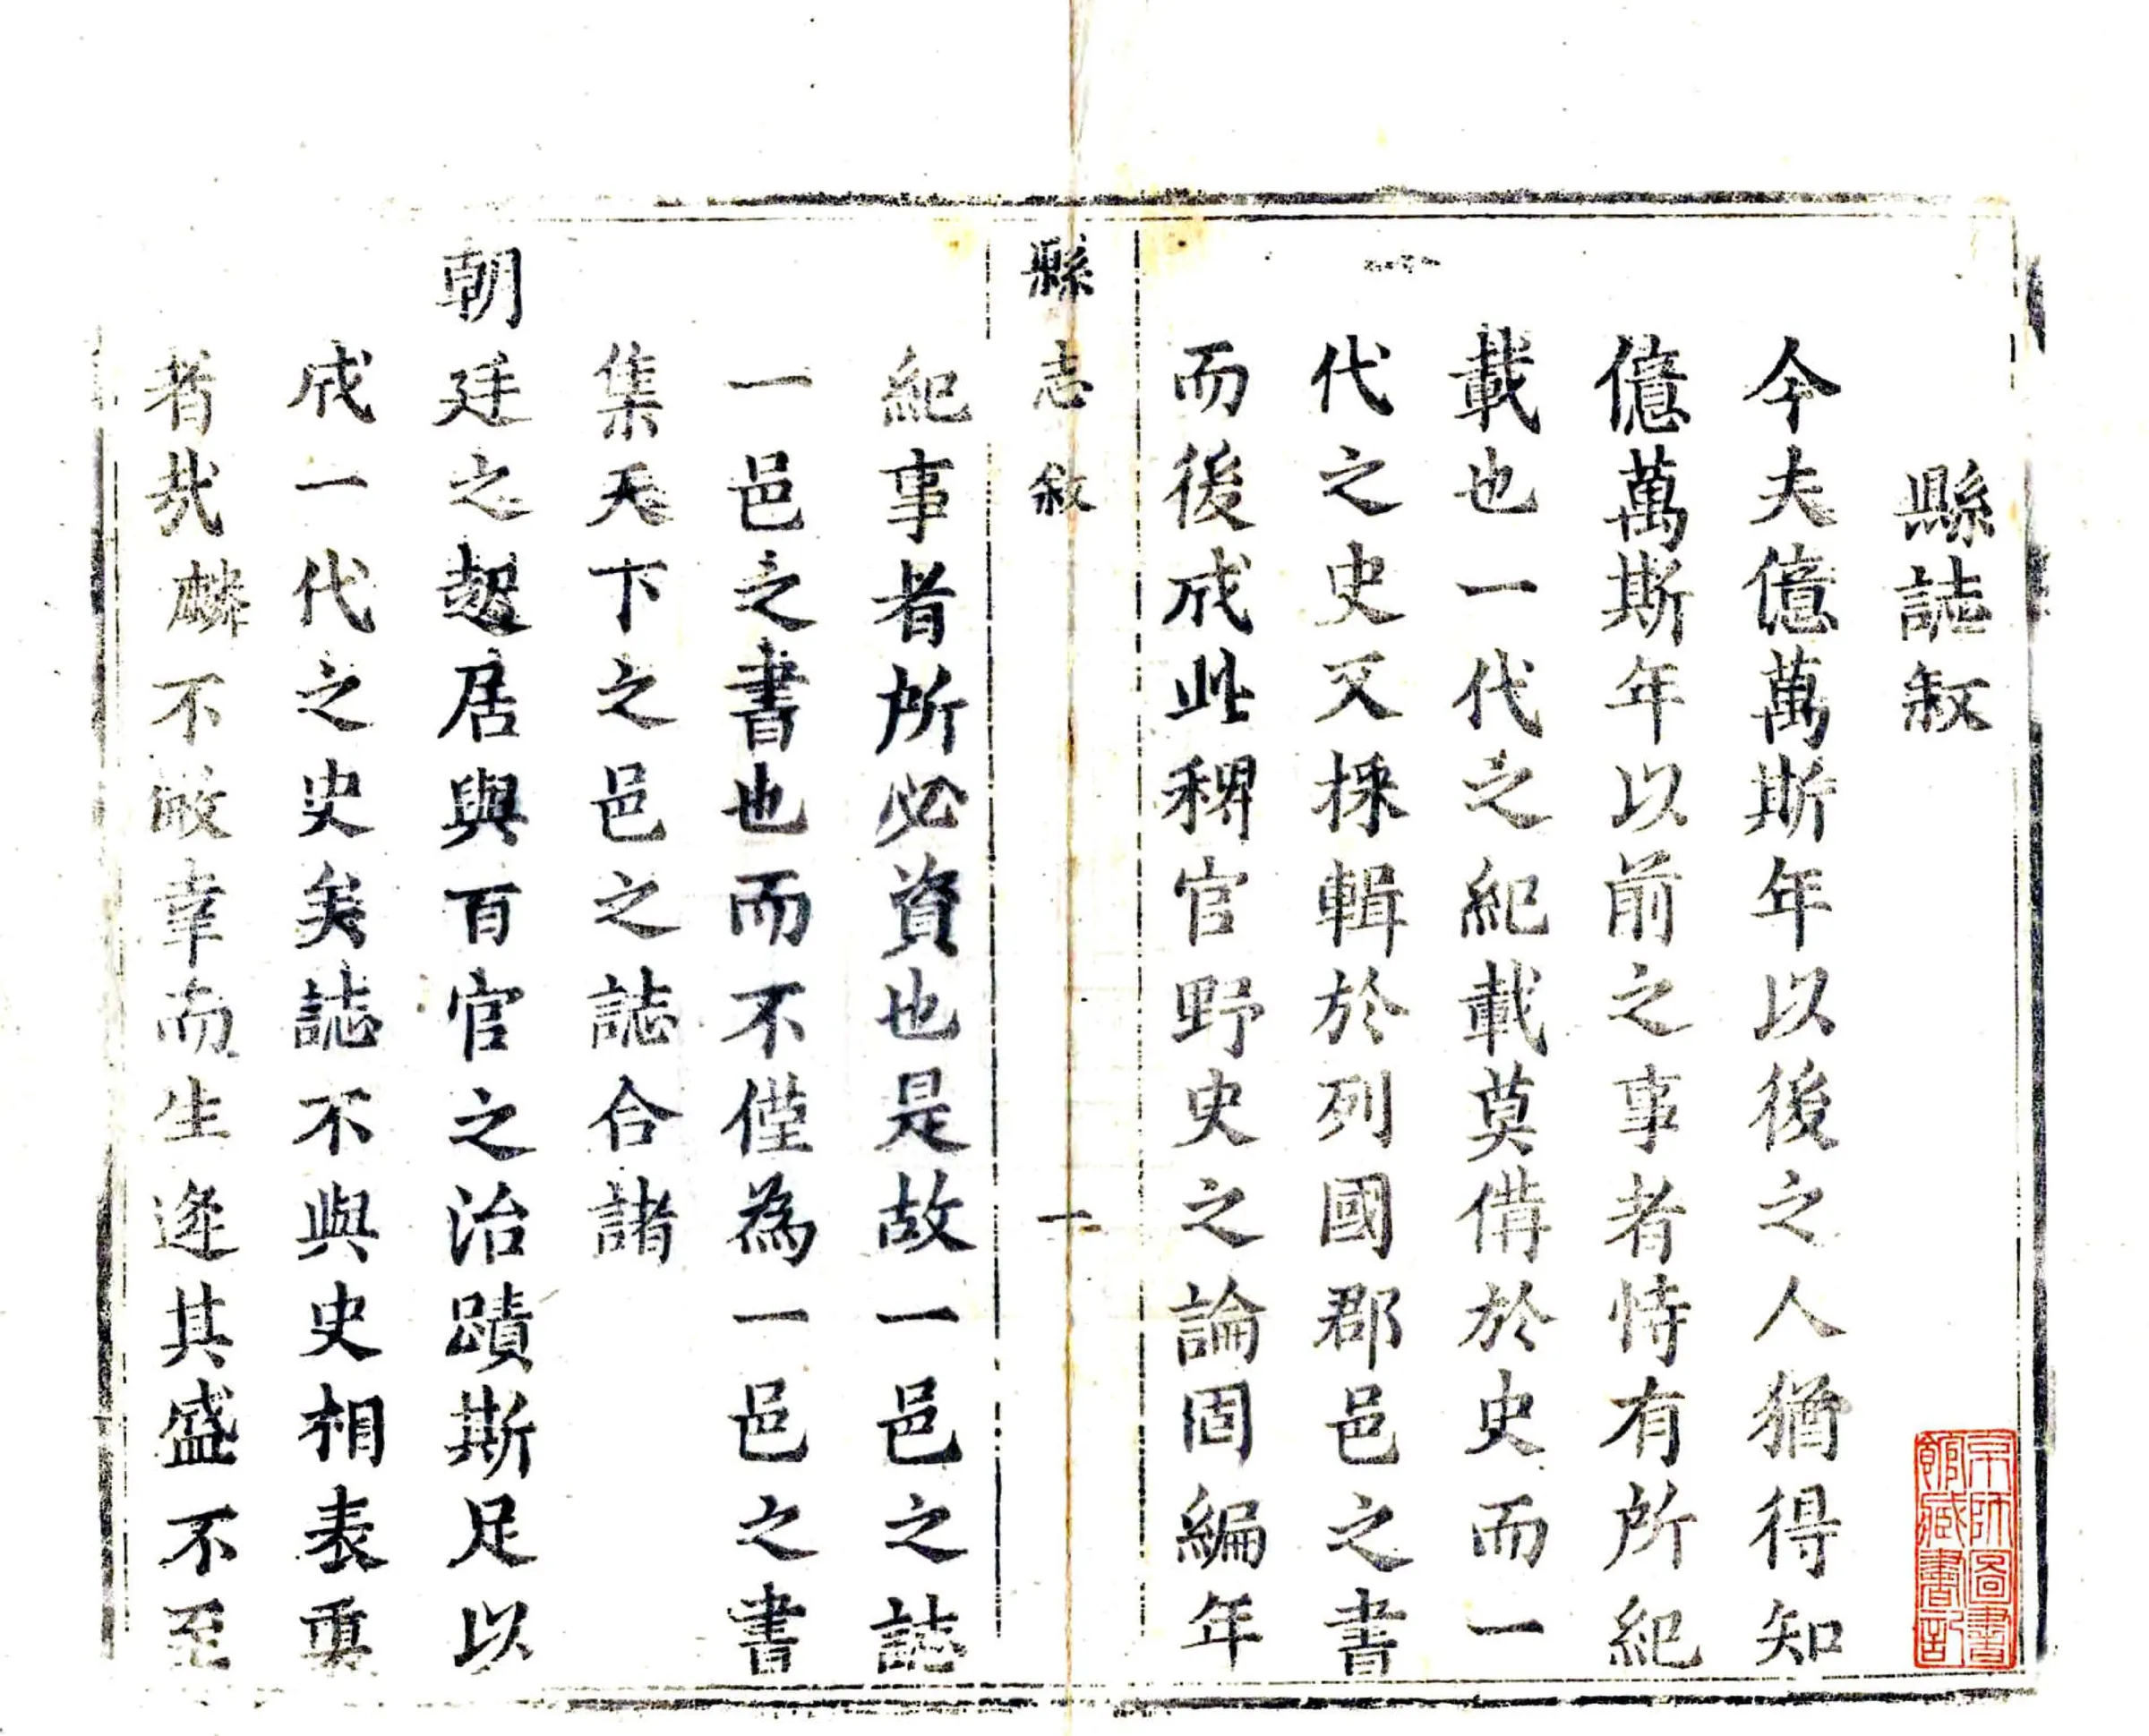 縣誌敘
今夫億萬斯年以後之人猶得知
億萬斯年以前之事者恃有所紀
載也一代之紀載莫備於史而一
代之史又採輯於列國郡邑之書
而後成此稗官野史之論固編年
縣志敘
一
紀事者所必資也是故一邑之誌
一邑之書也而不僅為一邑之書
集天下之邑之誌合諸
朝廷之起居與百官之治蹟斯足以
成一代之史矣誌不與史相表裏
者哉麟不敏幸而生逢其盛不至
京師圖書
館藏書記